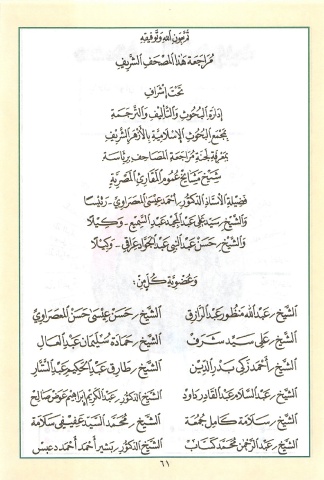 تم بعون الله وتوفيقه
مراجعة هذا المصحف الشريف
تحت إشراف
إدارة البحوث والتأليف والترجمة
بمجمع البحوث الإسلامية بالأزهر الشريف
بمعرفة لجنة مراجعة المصاحف برئاسة
شيخ مشايخ عموم المقارئ المصرية
فضيلة الأستاذ الدكتور/ أحمد عيسى المعصراوي - رئيسًا
والشيخ/ سيد علي عبد المجيد عبد السميع - وكيلًا
والشيخ/ حسن عبد النبي عبد الجواد عراقي - وكيلًا
وعضوية كل من:
الشيخ/ عبد الله منظور عبد الرازق الشيخ/ حسن عيسى حسن المعصراوي
الشيخ/ علي سيد شرف الشيخ/ حمادة سليمان عبد العال
الشيخ/ أحمد زكي بدر الدين الشيخ/ طارق عبد الحكيم عبد الستار
الشيخ/ عبد السلام عبد القادر داود الشيخ الدكتور/ عبد الكريم إبراهيم عوض صالح
الشيخ/ سلامة كامل جمعة الشيخ/ محمد السيد عفيفي سلامة
الشيخ/ عبد الرحمن محمد كساب الشيخ الدكتور/ بشير أحمد أحمد دعبس
٦١